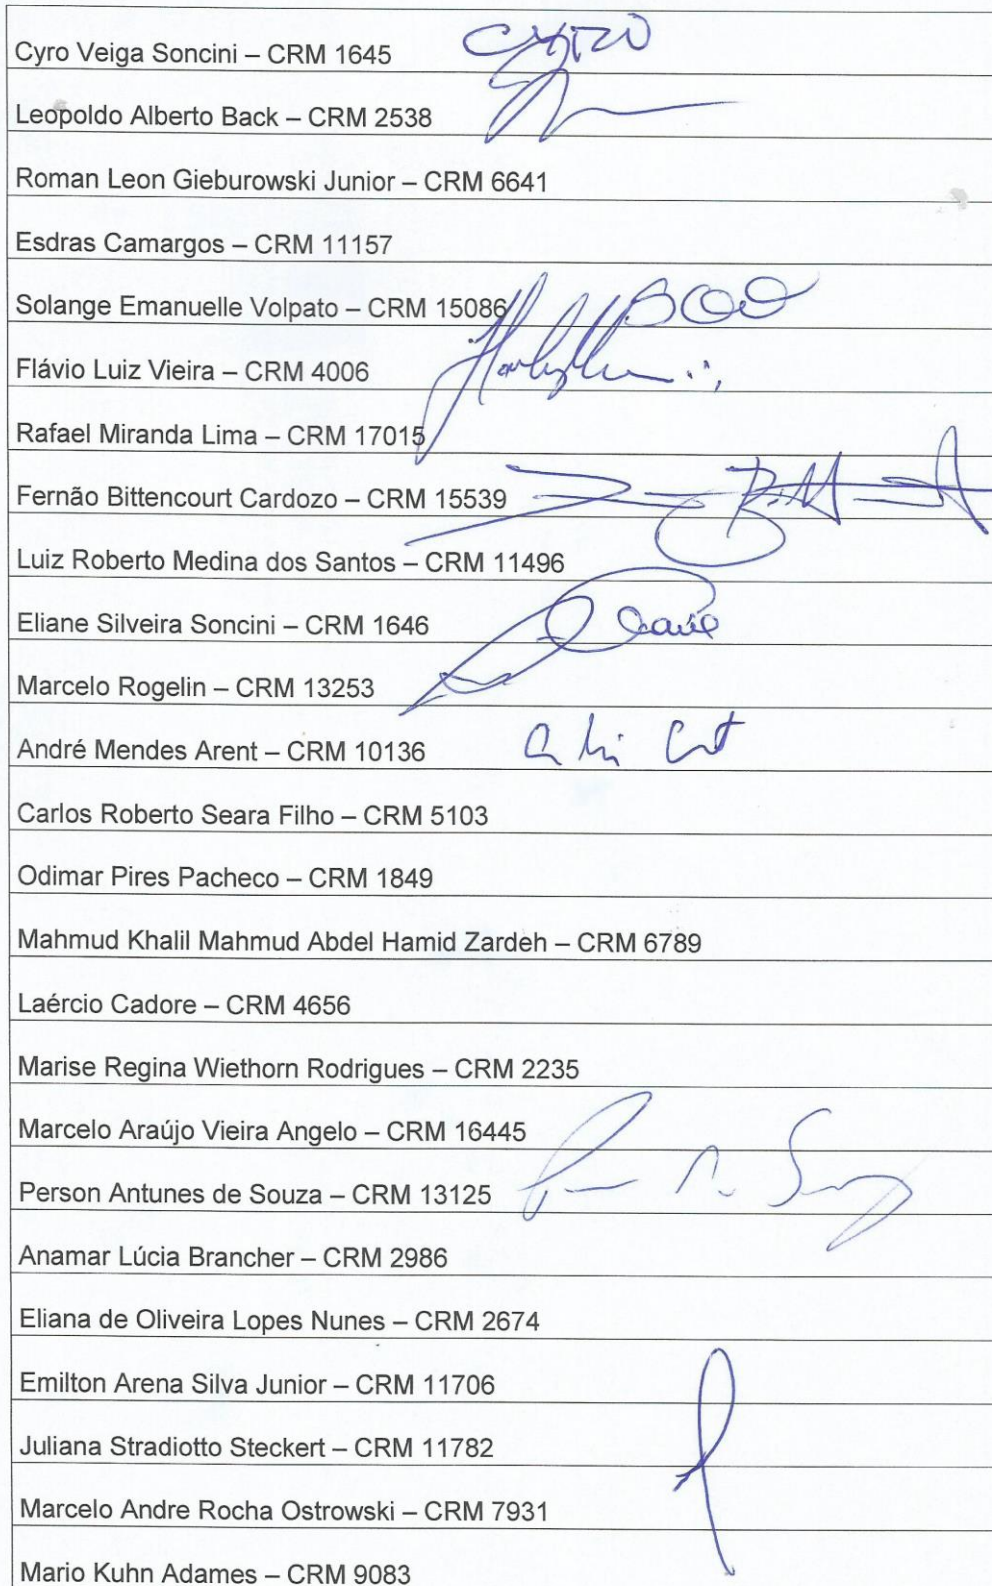 Cyro Veiga Soncini – CRM 1645 CYRO
Leopoldo Alberto Back – CRM 2538
Roman Leon Gieburowski Junior – CRM 6641
Esdras Camargos – CRM 11157
Solange Emanuelle Volpato – CRM 15086
Flávio Luiz Vieira – CRM 4006
Rafael Miranda Lima – CRM 17015
Fernão Bittencourt Cardozo – CRM 15539
Luiz Roberto Medina dos Santos – CRM 11496
Eliane Silveira Soncini – CRM 1646
Marcelo Rogelin – CRM 13253
André Mendes Arent – CRM 10136
Carlos Roberto Seara Filho – CRM 5103
Odimar Pires Pacheco – CRM 1849
Mahmud Khalil Mahmud Abdel Hamid Zardeh – CRM 6789
Laércio Cadore – CRM 4656
Marise Regina Wiethorn Rodrigues – CRM 2235
Marcelo Araújo Vieira Angelo – CRM 16445
Person Antunes de Souza – CRM 13125
Anamar Lúcia Brancher – CRM 2986
Eliana de Oliveira Lopes Nunes – CRM 2674
Emilton Arena Silva Junior – CRM 11706
Juliana Stradiotto Steckert – CRM 11782
Marcelo Andre Rocha Ostrowski – CRM 7931
Mario Kuhn Adames – CRM 9083